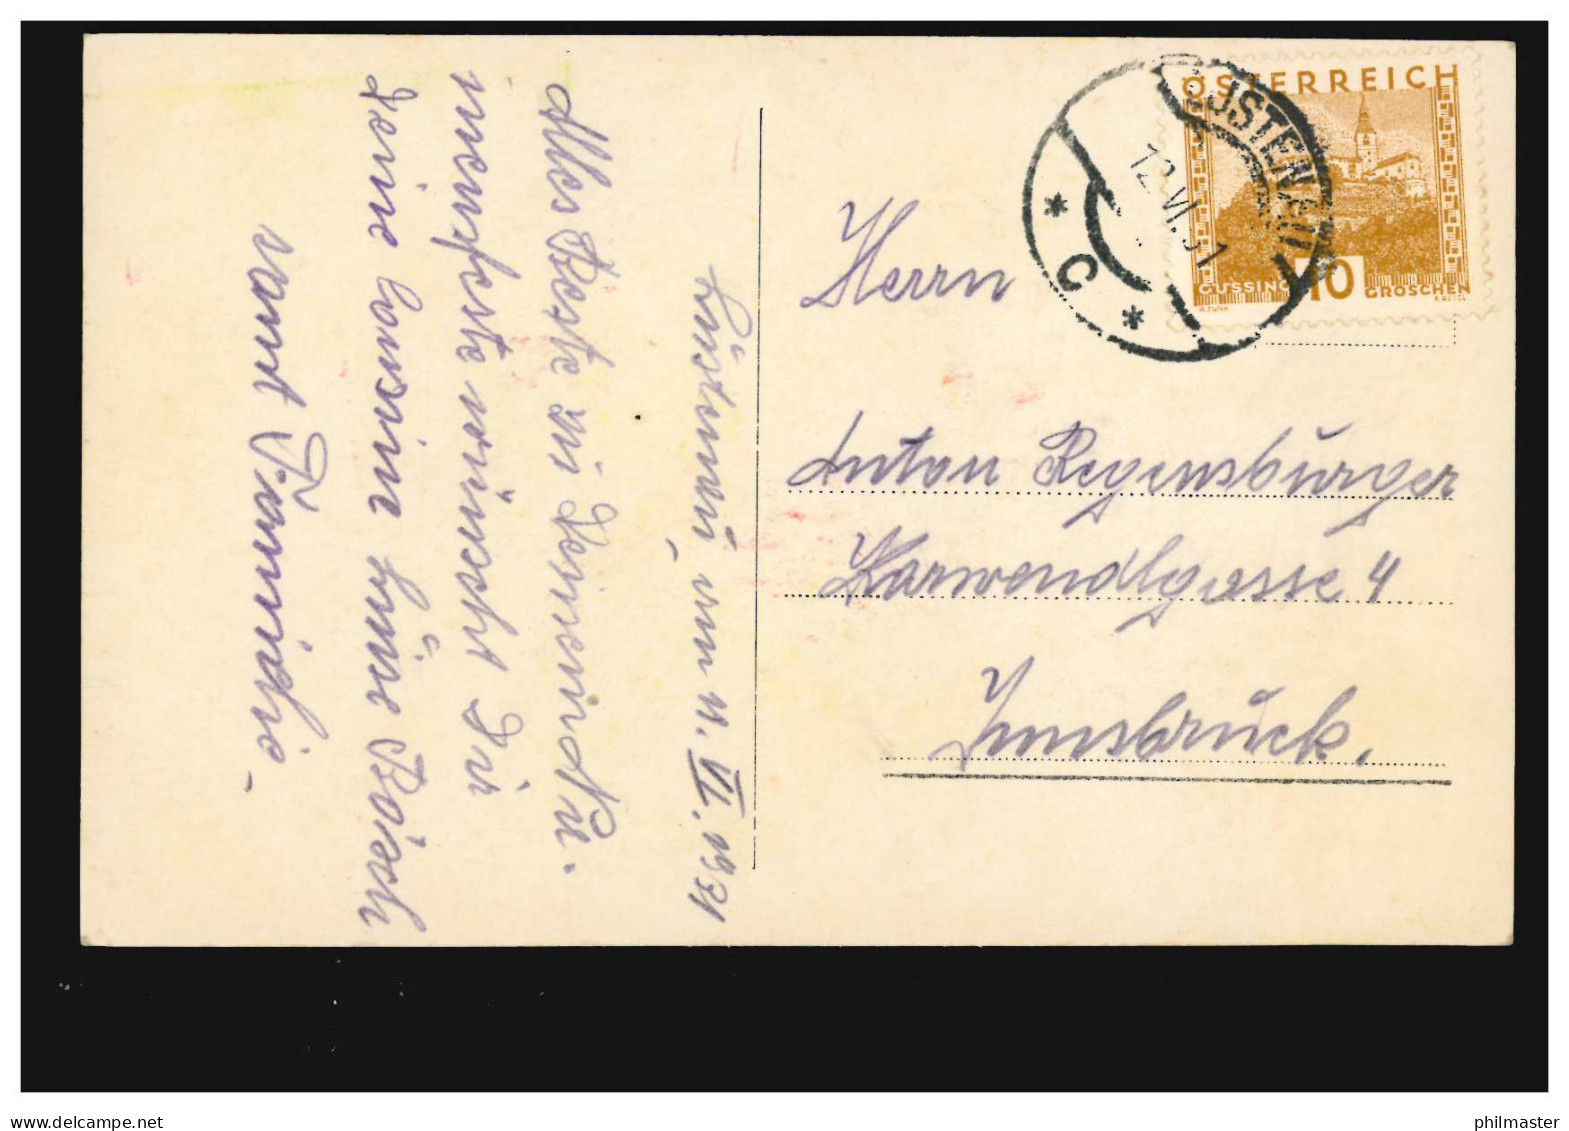 Lustenau, am 11. VI. 1931
Alles Beste zu Deinem Na-
mensfeste wünscht Dir
Deine Cousine Luise Bösch
samt Familie.
ÖSTERREICH
GÜSSING 10 GROSCHEN
LUSTENAU
12.VI.31
* C *
Herrn
Anton Regensburger
Karwendlgasse 4
Innsbruck.
delcampe.net
philmaster